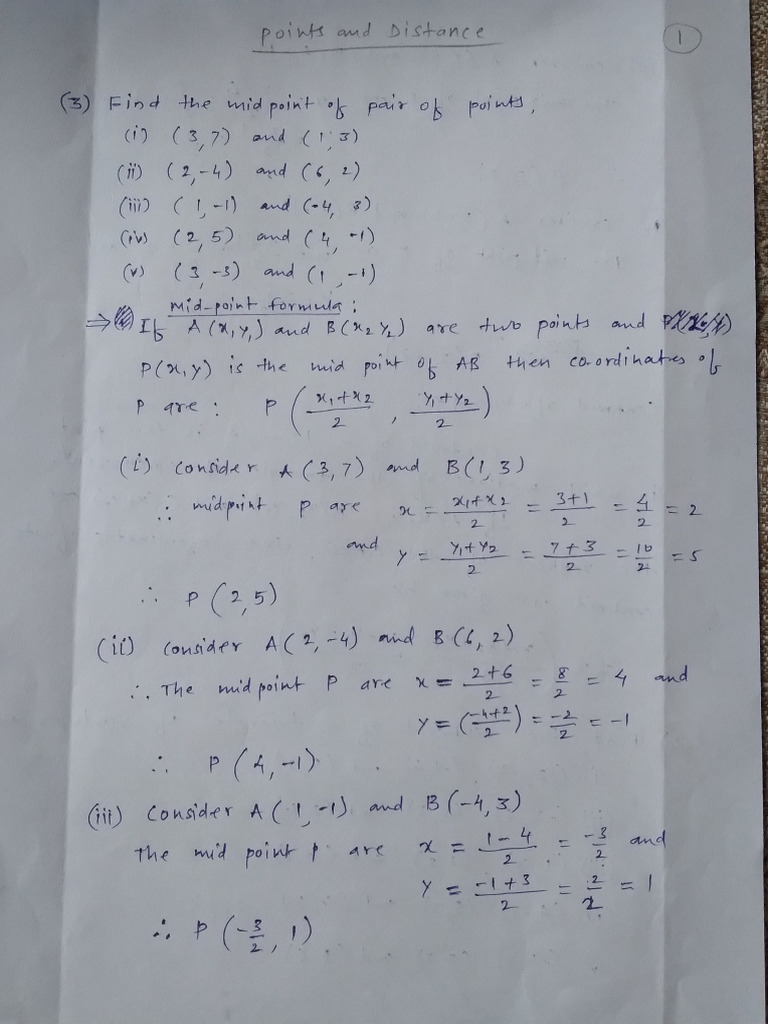 Points and Distance
1
(3) Find the midpoint of pair of points,
(i) (3,7) and (1,3)
(ii) (2,-4) and (6,2)
(iii) (1,-1) and (-4, 3)
(iv) (2,5) and (4,-1)
(v) (3,-3) and (1,-1)
Mid-point formula:
⇒ If A(x₁y₁) and B(x₂ y₂) are two points and
P(x,y) is the mid point of AB then co-ordinates of
P are : P ( (x₁+x₂)/2 , (y₁+y₂)/2 )
(i) consider A(3,7) and B(1,3)
∴ midpoint P are x = (x₁+x₂)/2 = (3+1)/2 = 4/2 = 2
and y = (y₁+y₂)/2 = (7+3)/2 = 10/2 = 5
∴ P(2,5)
(ii) consider A(2,-4) and B(6,2)
∴ The midpoint P are x = (2+6)/2 = 8/2 = 4 and
y = ((-4+2)/2) = -2/2 = -1
∴ P(4,-1)
(iii) Consider A(1,-1) and B(-4,3)
The mid point P are x = (1-4)/2 = -3/2 and
y = (-1+3)/2 = 2/2 = 1
∴ P(-3/2, 1)